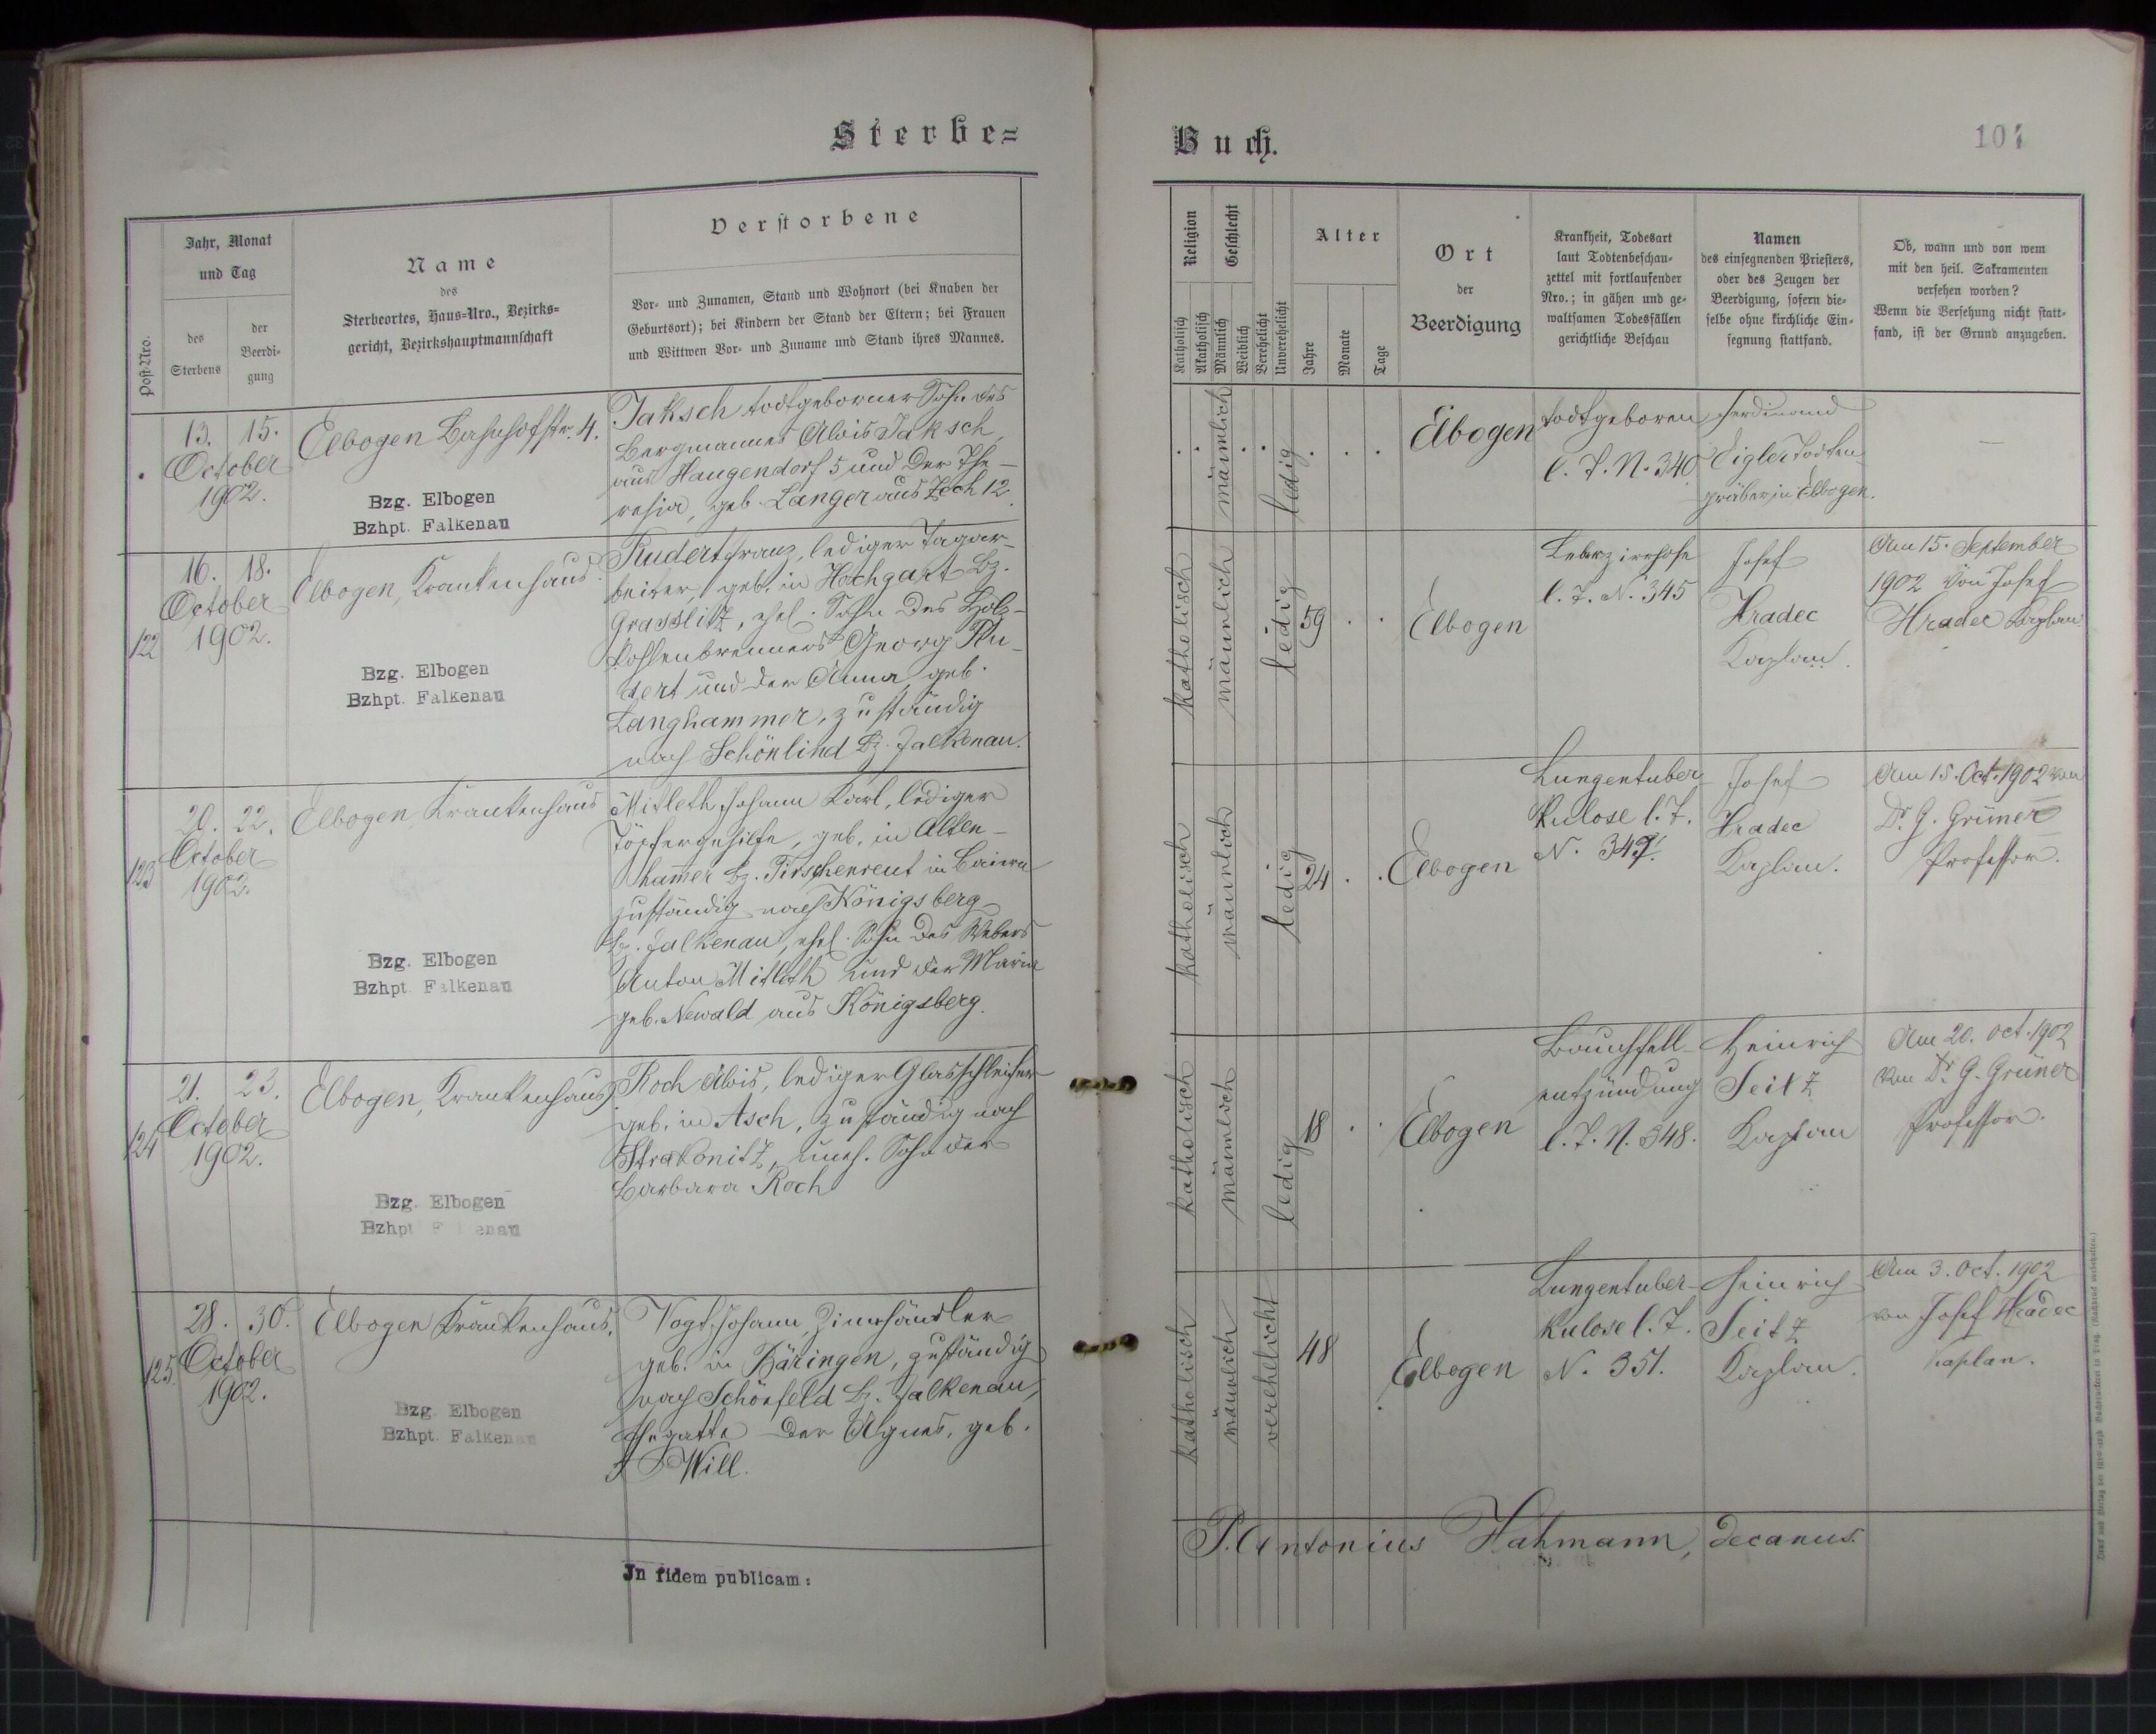 Sterbe=
Jahr, Monat
und Tag
Post-Nro.
des
Sterbens
der
Beerdi=
gung
Name
des
Sterbeortes, Haus=Nro., Bezirks=
gericht, Bezirkshauptmannschaft
Verstorbene
Vor= und Zunamen, Stand und Wohnort (bei Knaben der
Geburtsort); bei Kindern der Stand der Eltern; bei Frauen
und Wittwen Vor= und Zuname und Stand ihres Mannes.
13. 15.
October
1902.
Elbogen Bahnhofstr. 4.
Bzg. Elbogen
Bzhpt. Falkenau
Jaksch todtgeborner Sohn des
Bergmannes Alois Jaksch
aus Haugendorf 5 und der The-
resia, geb. Langer aus Zech 12.
122
16. 18.
October
1902.
Elbogen, Krankenhaus
Bzg. Elbogen
Bzhpt. Falkenau
Rudert Franz, lediger Tagar-
beiter, geb. in Hochgart Bz.
Grasslitz, ehel. Sohn des Holz-
kohlenbrenners Georg Ru-
dert und der Anna geb.
Langhammer, zuständig
nach Schönlind Bz. Falkenau.
123
20. 22.
October
1902.
Elbogen Krankenhaus
Bzg. Elbogen
Bzhpt. Falkenau
Mitleth Johann Karl, lediger
Töpfergehilfe, geb. in Alten-
hammer Bz. Tirschenreut in Baiern
zuständig nach Königsberg
Bz. Falkenau, ehel. Sohn des Webers
Anton Mitleth und der Maria
geb. Newald aus Königsberg.
124
21. 23.
October
1902.
Elbogen, Krankenhaus
Bzg. Elbogen
Bzhpt Falkenau
Roch Alois, lediger Glasschleifer
geb. in Asch, zuständig nach
Strakonitz, uneh. Sohn der
Barbara Roch
125.
28. 30.
October
1902.
Elbogen Krankenhaus.
Bzg. Elbogen
Bzhpt. Falkenau
Vogt Johann,
geb. in Bäringen, zuständig
nach Schönfeld Bz. Falkenau,
Ehegatte der Agnes, geb.
Will.
In fidem publicam:
Buch.
107
Religion
Katholisch
Akatholisch
Geschlecht
Männlich
Weiblich
Verehelicht
Unverehelicht
Alter
Jahre
Monate
Tage
Ort
der
Beerdigung
Krankheit, Todesart
laut Todtenbeschau=
zettel mit fortlaufender
Nro.; in gähen und ge=
waltsamen Todesfällen
gerichtliche Beschau
Namen
des einsegnenden Priesters,
oder des Zeugen der
Beerdigung, sofern die=
selbe ohne kirchliche Ein=
segnung stattfand.
Ob, wann und von wem
mit den heil. Sakramenten
versehen worden?
Wenn die Versehung nicht statt=
fand, ist der Grund anzugeben.
männlich
ledig
Elbogen
todtgeboren
l. T. N. 340
Ferdinand
Eigler Todten-
gräber in Elbogen.
katholisch
männlich
ledig
59
Elbogen
Leberzirrhose
l. T. N. 345
Josef
Hradec
Kaplan.
Am 15. September
1902 von Josef
Hradec Kaplan
katholisch
männlich
ledig
24
Elbogen
Lungentuber-
kulose l. T.
N. 349.
Josef
Hradec
Kaplan.
Am 15. Oct. 1902 von
Dr. G. Grüner
Professor.
katholisch
männlich
ledig
18
Elbogen
Bauchfell-
entzündung
l. T. N. 348.
Heinrich
Seitz
Kaplan
Am 20. Oct. 1902
von Dr. G. Grüner
Professor.
katholisch
männlich
verehelicht
48
Elbogen
Lungentuber-
kulose l. T.
N. 351.
Heinrich
Seitz
Kaplan.
Am 3. Oct. 1902
von Josef Hradec
Kaplan.
P. Antonius Hahmann, decanus.